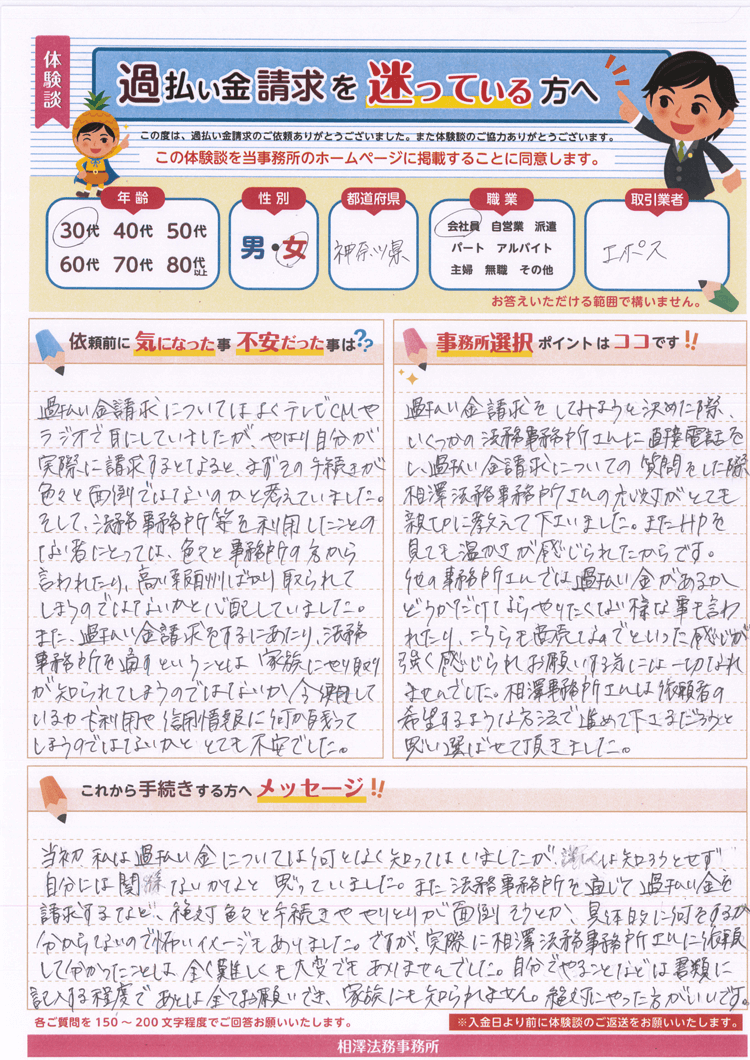 体験談
過払い金請求を 迷っている 方へ
この度は、過払い金請求のご依頼ありがとうございました。また体験談のご協力ありがとうございます。
この体験談を当事務所のホームページに掲載することに同意します。
年齢
30代 40代 50代
60代 70代 80代以上
性別
男・女
都道府県
神奈川県
職業
会社員 自営業 派遣
パート アルバイト
主婦 無職 その他
取引業者
エポス
お答えいただける範囲で構いません。
依頼前に 気になった事 不安だった事は??
過払い金請求についてはよくテレビCMや
ラジオで耳にしていましたが、やはり自分が
実際に請求するとなると、まずその手続きが
色々と面倒ではないのかと考えていました。
そして、法務事務所等を利用したことの
ない者にとっては、色々と事務所の方から
言われたり、高い報酬ばかり取られて
しまうのではないかと心配していました。
また、過払い金請求をするにあたり、法務
事務所を通すということは 家族にやり取り
が知られてしまうのではないか、今使用して
いるカード利用や信用情報に何か残って
しまうのではないかと とても不安でした。
事務所選択 ポイントは ココです!!
過払い金請求をしてみようと決めた際、
いくつかの法務事務所さんに直接電話を
し、過払い金請求についての質問をした際
相澤法務事務所さんの方がとても
親切に教えて下さいました。またHPを
見ても温かさが感じられたからです。
他の事務所さんでは過払い金があるか
どうかだけならやりたくない様な事も言わ
れたり、こちらも商売なのでといった感じが
強く感じられお願いする気には一切なれ
ませんでした。相澤事務所さんは依頼者の
希望するような方法で進めて下さるだろうと
思い選ばせて頂きました。
これから手続きする方へ メッセージ!!
当初 私は過払い金については何となく知ってはいましたが、詳しくは知ろうとせず
自分には関係ないかなと思っていました。また法務事務所を通じて過払い金を
請求するなど、絶対色々と手続きややりとりが面倒そうとか、具体的に何をするか
分からないので怖いイメージもありました。ですが、実際に相澤法務事務所さんに依頼
して分かったことは、全く難しくも大変でもありませんでした。自分でやることなどは書類に
記入する程度であとは全てお願いでき、家族にも知られません。絶対にやった方がいいです。
各ご質問を 150～200 文字程度でご回答お願いいたします。
※入金日より前に体験談のご返送をお願いいたします。
相澤法務事務所